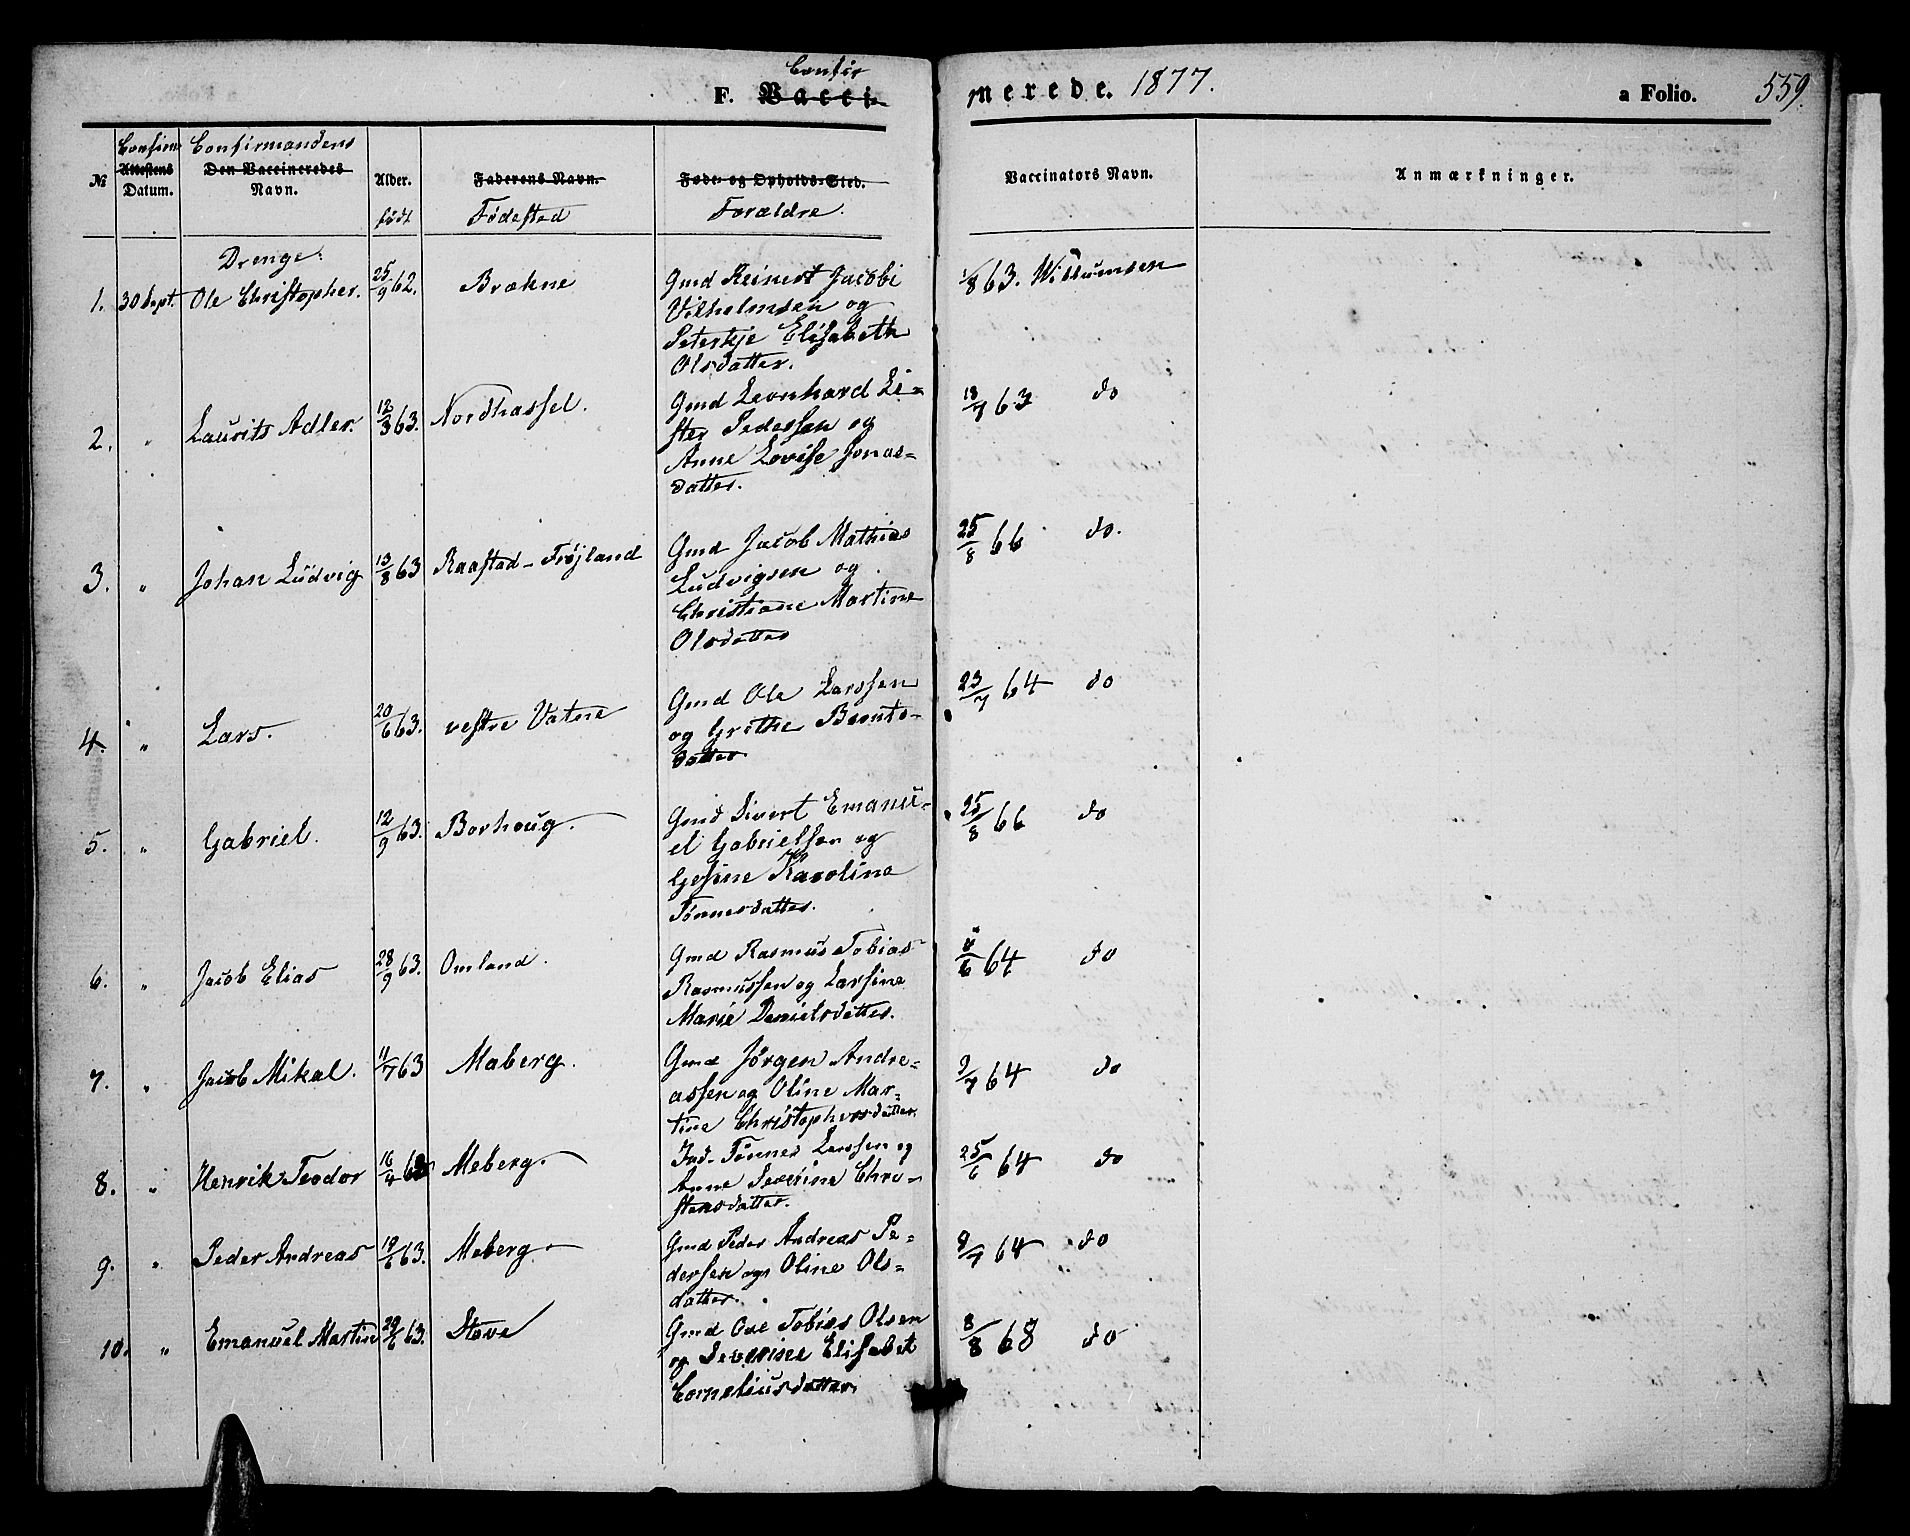 Confir
F. Vacci- merede. 1877. a Folio. 559.
Confirm Confirmandens
№ Attestens Den Vaccineredes Alder. Faderens Navn. Føde- og Opholds-Sted. Vaccinators Navn. Anmærkninger.
Datum. Navn.
født Fødested Forældre.
Drenge:
1. 30 Sept. Ole Christopher. 25/9 62. Brækne Gmd Reinert Jacobi 1/8 63. Willumsen
Vilhelmsen og
Peterkje Elisabeth
Olsdatter.
2. " Laurits Adler. 12/3 63. Nordhassel. Gmd Leonhard Li= 18/7 63 do
ster Pedersen og
Anne Lovise Jonas=
datter.
3. " Johan Ludvig 13/8 63 Raastad - Frøjland Gmd Jacob Mathias 25/8 66 do.
Ludvigsen og
Christiane Martine
Olsdatter
4. " Lars. 20/6 63. vestre Vatne Gmd Ole Larssen 23/7 64 do
og Grethe Bernts-
datter
5. " Gabriel. 12/9 63. Borhoug. Gmd Sivert Emanu- 25/8 66 do
el Gabrielsen og
Gesine Karoline
Tønnesdatter.
6. " Jacob Elias 28/9 63. Omland. Gmd Rasmus Tobias /6 64 do
Rasmussen og Larsine
Marie Danielsdatter.
7. " Jacob Mikal. 11/7 63 Maberg. Gmd Jørgen Andre- 9/7 64 do
assen og Oline Mar-
tine Christophersdatter.
8. " Henrik Teodor 16/4 Meberg. Ind. Tønnes Larssen og 25/6 64 do
Anne Severine Chri-
stensdatter.
9. " Peder Andreas 19/6 63. Meberg. Gmd Peder Andreas Pe- 9/7 64 do
dersen og Oline Ols-
datter.
10. " Emanuel Martin 29/6 63. Stave Gmd Ole Tobias Olsen 8/8 68 do
og Severine Elisabet
Corneliusdatter.